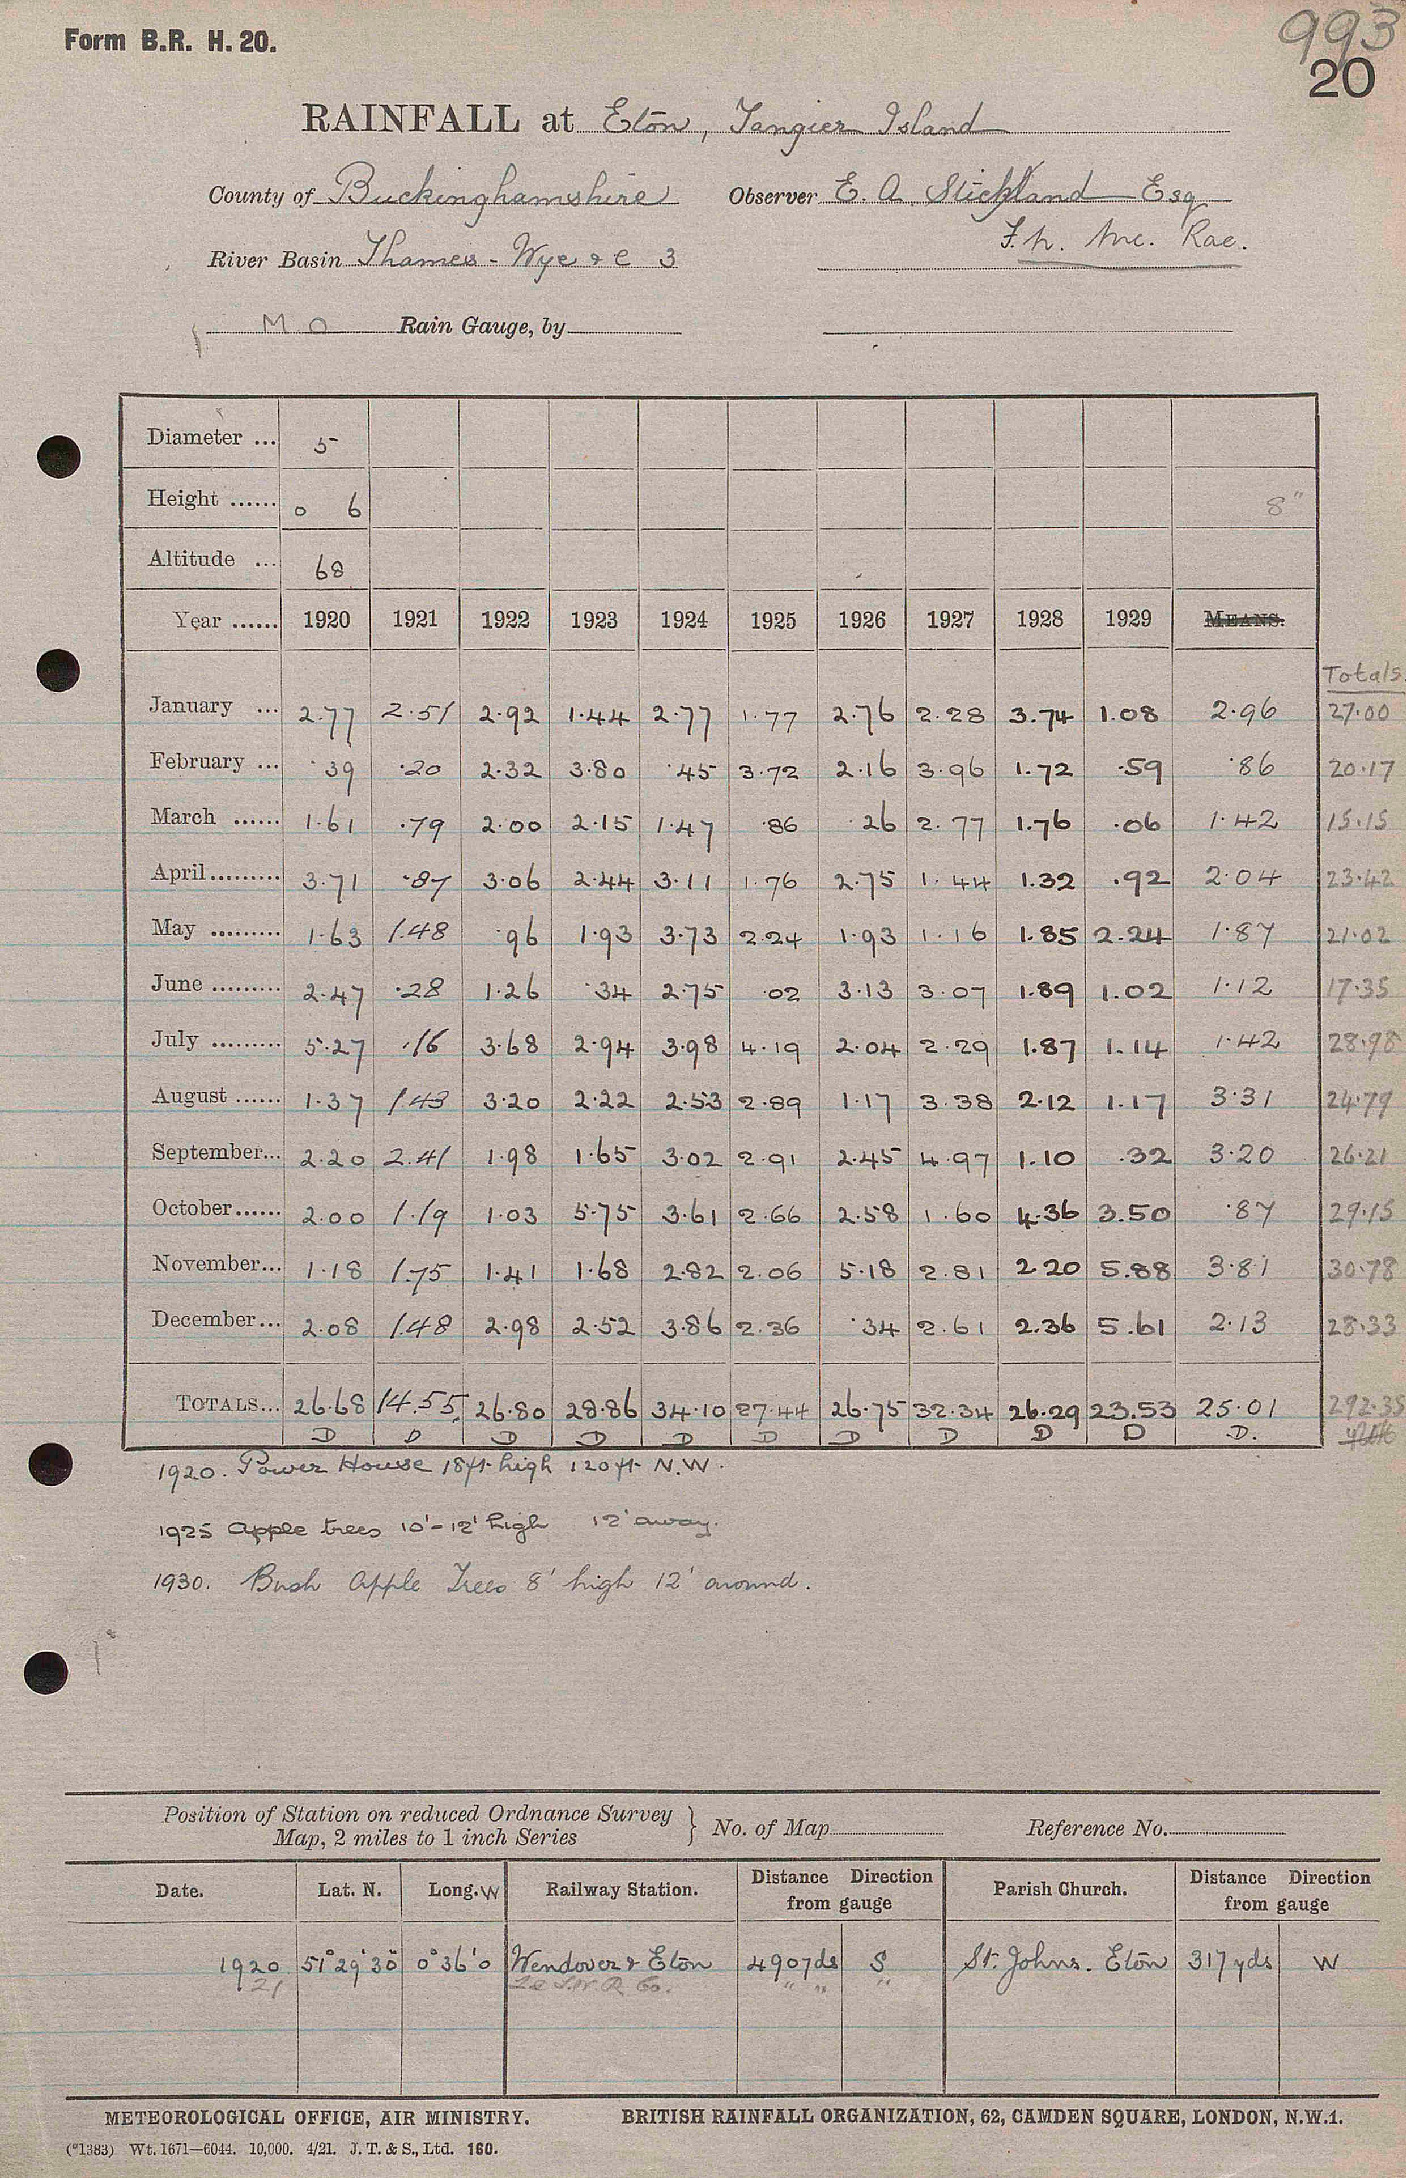 Form B.R. H. 20.
993
20
RAINFALL at Eton, Tangier Island
County of Buckinghamshire Observer E. A. Stickland Esq
Mc. Rae.
River Basin Thames - Wye & C 3
M O Rain Gauge, by
Diameter ... 5
Height ...... 0 6 8"
Altitude ... 68
Year ...... 1920 1921 1922 1923 1924 1925 1926 1927 1928 1929 MEANS.
Totals
January ... 2.77 2.51 2.92 1.44 2.77 1.77 2.76 2.28 3.74 1.08 2.96 27.00
February ... .39 .20 2.32 3.80 .45 3.72 2.16 3.96 1.72 .59 .86 20.17
March ...... 1.61 .79 2.00 2.15 1.47 .86 .26 2.77 1.76 .06 1.42 15.15
April ......... 3.71 .87 3.06 2.44 3.11 1.76 2.75 1.44 1.32 .92 2.04 23.42
May ......... 1.63 1.48 .96 1.93 3.73 2.24 1.93 1.16 1.85 2.24 1.87 21.02
June ......... 2.47 .28 1.26 .34 2.75 .02 3.13 3.07 1.89 1.02 1.12 17.35
July ......... 5.27 .16 3.68 2.94 3.98 4.19 2.04 2.29 1.87 1.14 1.42 28.98
August ...... 1.37 1.43 3.20 2.22 2.53 2.89 1.17 3.38 2.12 1.17 3.31 24.79
September... 2.20 2.41 1.98 1.65 3.02 2.91 2.45 4.97 1.10 .32 3.20 26.21
October...... 2.00 1.19 1.03 5.75 3.61 2.66 2.58 1.60 4.36 3.50 .87 29.15
November... 1.18 1.75 1.41 1.68 2.82 2.06 5.18 2.81 2.20 5.88 3.81 30.78
December... 2.08 1.48 2.98 2.52 3.86 2.36 .34 2.61 2.36 5.61 2.13 28.33
TOTALS... 26.68 14.55 26.80 28.86 34.10 27.44 26.75 32.34 26.29 23.53 25.01 292.35
D D D D D D D D D D D.
1920. Power House 18ft. high 120ft N.W.
1925 Apple trees 10'-12' high 12' away.
1930. Bush Apple Trees 8' high 12' around.
Position of Station on reduced Ordnance Survey
Map, 2 miles to 1 inch Series } No. of Map Reference No.
Date. Lat. N. Long. W Railway Station. Distance Direction from gauge Parish Church. Distance Direction from gauge
1920 51° 29' 30" 0° 36' 0 Wendover & Eton 490yds S St. Johns. Eton 317 yds W
21 " " "
METEOROLOGICAL OFFICE, AIR MINISTRY. BRITISH RAINFALL ORGANIZATION, 62, CAMDEN SQUARE, LONDON, N.W.1.
(*1383) Wt. 1671—6044. 10,000. 4/21. J. T. & S., Ltd. 160.